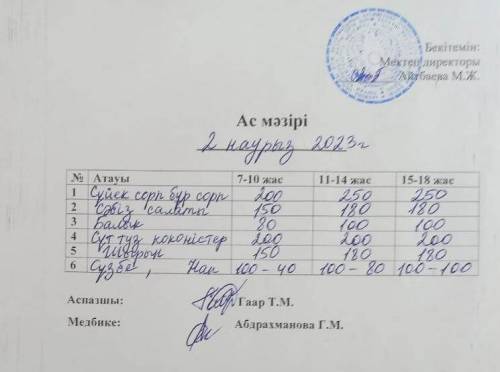 Бекітемін:
Мектеп директоры
Айтбаева М.Ж.
Ас мәзірі
2 наурыз 2023г
№ Атауы 7-10 жас 11-14 жас 15-18 жас
1 Сүйек сорп бұр сорп 200 250 250
2 Сәбіз салаты 150 180 180
3 Балық 80 100 100
4 Сүт тұз көкөністер 200 200 200
5 150 180 180
6 Сүзбе, Нан 100-40 100-80 100-100
Аспазшы: Гаар Т.М.
Медбике: Абдрахманова Г.М.